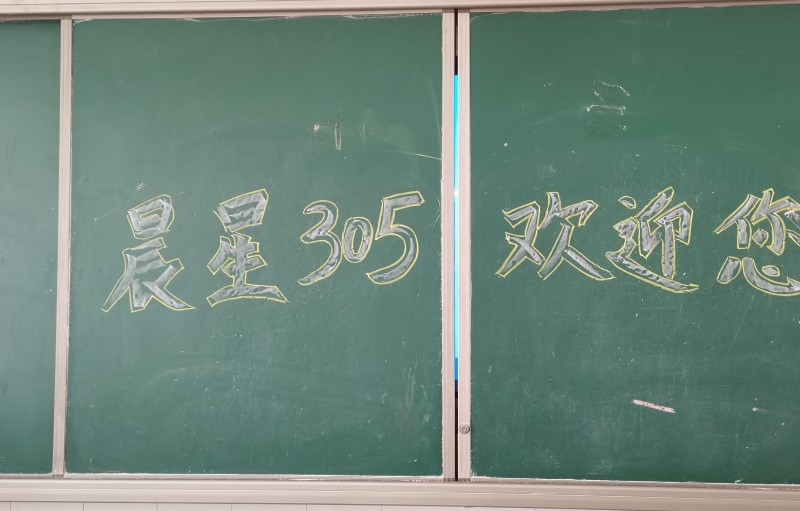 晨星305 欢迎您